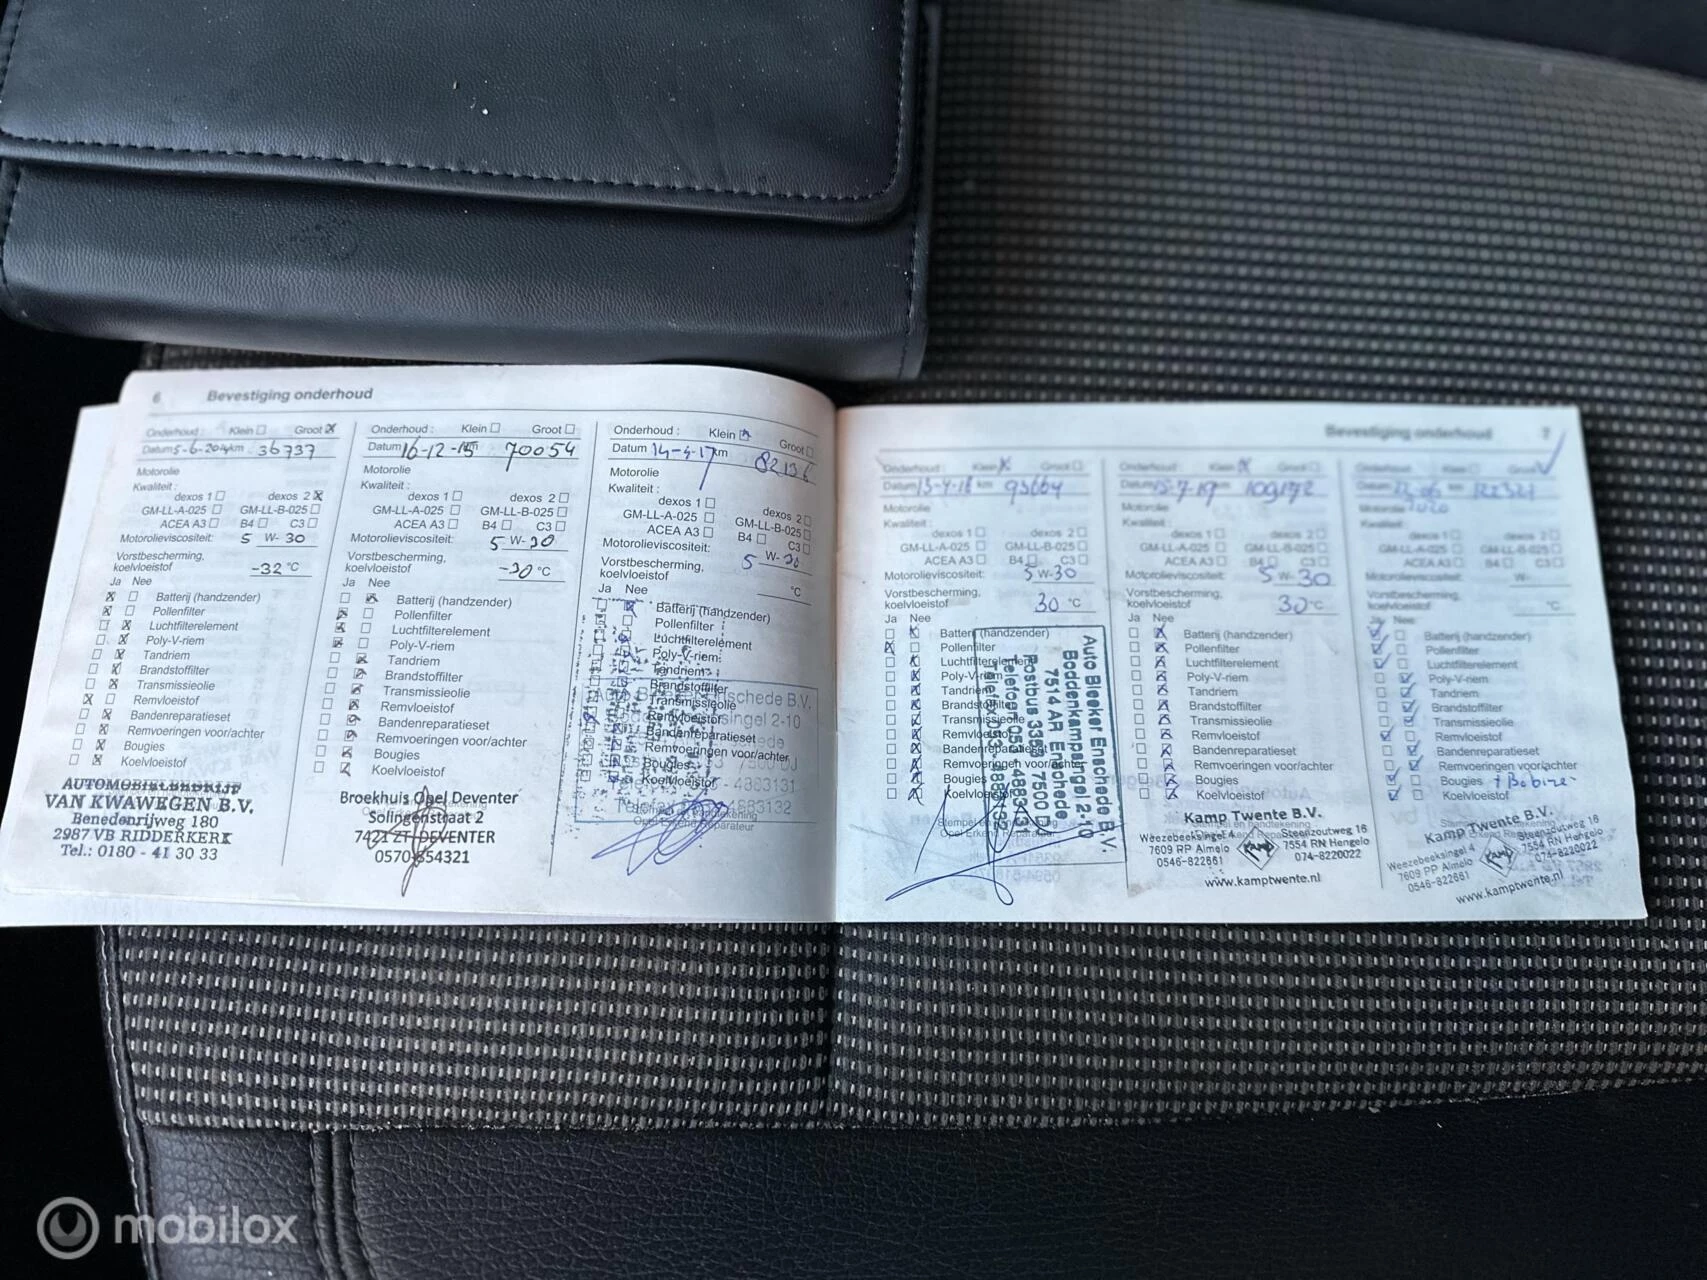 6 Bevestiging onderhoud
Onderhoud : Klein Groot
Datum 5-6-2014 km 36737
Motorolie
Kwaliteit :
dexos 1 dexos 2
GM-LL-A-025 GM-LL-B-025
ACEA A3 B4 C3
Motorolieviscositeit: 5 W- 30
Vorstbescherming,
koelvloeistof -32 °C
Ja Nee
Batterij (handzender)
Pollenfilter
Luchtfilterelement
Poly-V-riem
Tandriem
Brandstoffilter
Transmissieolie
Remvloeistof
Bandenreparatieset
Remvoeringen voor/achter
Bougies
Koelvloeistof
AUTOMOBIELBEDRIJF
VAN KWAWEGEN B.V.
Benedenrijweg 180
2987 VB RIDDERKERK
Tel.: 0180 - 41 30 33
Onderhoud : Klein Groot
Datum 16-12-15 km 70054
Motorolie
Kwaliteit :
dexos 1 dexos 2
GM-LL-A-025 GM-LL-B-025
ACEA A3 B4 C3
Motorolieviscositeit: 5 W- 30
Vorstbescherming,
koelvloeistof -30 °C
Ja Nee
Batterij (handzender)
Pollenfilter
Luchtfilterelement
Poly-V-riem
Tandriem
Brandstoffilter
Transmissieolie
Remvloeistof
Bandenreparatieset
Remvoeringen voor/achter
Bougies
Koelvloeistof
Broekhuis Opel Deventer
Solingenstraat 2
7421 ZT DEVENTER
0570-854321
Onderhoud : Klein Groot
Datum 14-4-17 km 82136
Motorolie
Kwaliteit :
dexos 1 dexos 2
GM-LL-A-025 GM-LL-B-025
ACEA A3 B4 C3
Motorolieviscositeit: 5 W- 30
Vorstbescherming,
koelvloeistof °C
Ja Nee
Batterij (handzender)
Pollenfilter
Luchtfilterelement
Poly-V-riem
Tandriem
Brandstoffilter
Transmissieolie
Remvloeistof
Bandenreparatieset
Remvoeringen voor/achter
Bougies
Koelvloeistof
Stempel en handtekening
Opel Erkend Reparateur
Bevestiging onderhoud 7
Onderhoud : Klein Groot
Datum 13-4-18 km 93664
Motorolie
Kwaliteit :
dexos 1 dexos 2
GM-LL-A-025 GM-LL-B-025
ACEA A3 B4 C3
Motorolieviscositeit: 5 W-30
Vorstbescherming,
koelvloeistof 30 °C
Ja Nee
Batterij (handzender)
Pollenfilter
Luchtfilterelement
Poly-V-riem
Tandriem
Brandstoffilter
Transmissieolie
Remvloeistof
Bandenreparatieset
Remvoeringen voor/achter
Bougies
Koelvloeistof
Stempel en handtekening
Opel Erkend Reparateur
Auto Bleeker Enschede B.V.
Boddenkampsingel 2-10
7514 AR Enschede
Onderhoud : Klein Groot
Datum 15-7-19 km 109172
Motorolie
Kwaliteit :
dexos 1 dexos 2
GM-LL-A-025 GM-LL-B-025
ACEA A3 B4 C3
Motorolieviscositeit: 5 W- 30
Vorstbescherming,
koelvloeistof 30 °C
Ja Nee
Batterij (handzender)
Pollenfilter
Luchtfilterelement
Poly-V-riem
Tandriem
Brandstoffilter
Transmissieolie
Remvloeistof
Bandenreparatieset
Remvoeringen voor/achter
Bougies
Koelvloeistof
Kamp Twente B.V.
Weezebeeksingel 4 Steenzoutweg 16
7609 RP Almelo 7554 RN Hengelo
0546-822661 074-8220022
www.kamptwente.nl
Onderhoud : Klein Groot
Datum km
Motorolie 2020
Kwaliteit :
dexos 1 dexos 2
GM-LL-A-025 GM-LL-B-025
ACEA A3 B4 C3
Motorolieviscositeit: W-
Vorstbescherming,
koelvloeistof °C
Ja Nee
Batterij (handzender)
Pollenfilter
Luchtfilterelement
Poly-V-riem
Tandriem
Brandstoffilter
Transmissieolie
Remvloeistof
Bandenreparatieset
Remvoeringen voor/achter
Bougies + Bobine
Koelvloeistof
Kamp Twente B.V.
Weezebeeksingel 4 Steenzoutweg 16
7609 PP Almelo 7554 RN Hengelo
0546-822661 074-8220022
www.kamptwente.nl
mobilox